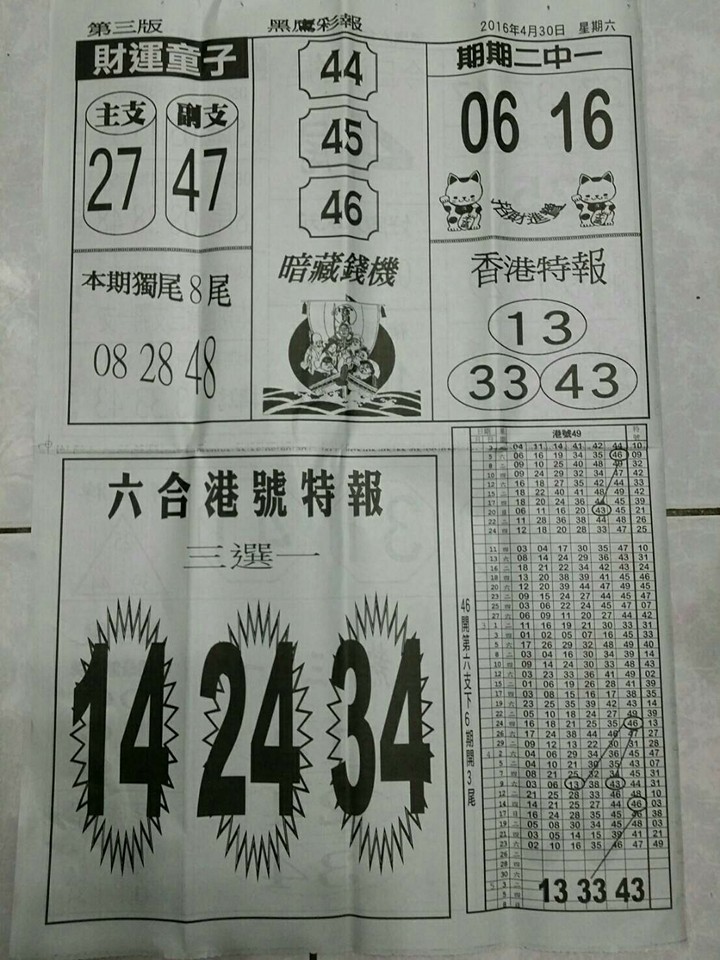 第三版
黑鷹彩報
2016年4月30日 星期六
財運童子
主支 副支
27 47
本期獨尾8尾
08 28 48
44
45
46
暗藏錢機
期期二中一
06 16
香港特報
13
33 43
六合港號特報
三選一
14 24 34
46開第六支下6期開3尾
港號49
04 11 14 41 42 44 10
06 16 15 34 35 46 09
09 10 25 40 48 49 32
09 24 29 32 34 47 42
16 18 27 35 42 44 33
18 22 40 41 48 49 42
18 20 24 36 44 45 39
06 11 16 20 43 45 21
11 28 36 38 44 48 26
12 18 20 28 33 47 25
03 04 17 30 35 47 10
08 14 24 29 36 43 31
18 21 22 34 42 43 24
13 20 38 39 41 45 46
12 20 39 44 45 49 47
09 15 24 27 44 45 47
03 06 22 24 45 47 07
06 09 11 20 27 44 42
11 16 19 21 30 33 31
01 02 05 07 16 45 33
17 26 29 32 48 49 40
03 04 16 30 34 39 14
09 14 24 30 33 48 43
03 23 33 36 41 49 02
01 06 19 26 28 41 39
03 08 15 16 17 38 35
19 35 39 42 43 14
05 10 18 24 27 49 39
16 18 21 25 35 46 13
17 24 38 44 46 47 27
09 12 13 22 30 31 28
04 06 29 34 36 45 47
04 10 21 30 35 43 07
08 21 25 32 34 45 31
03 06 13 38 43 44 31
21 25 28 33 46 48 10
14 21 25 27 44 46 03
16 24 28 35 45 46 38
05 08 30 34 45 48 03
03 05 14 15 39 41 21
02 10 16 35 46 47 49
13 33 43